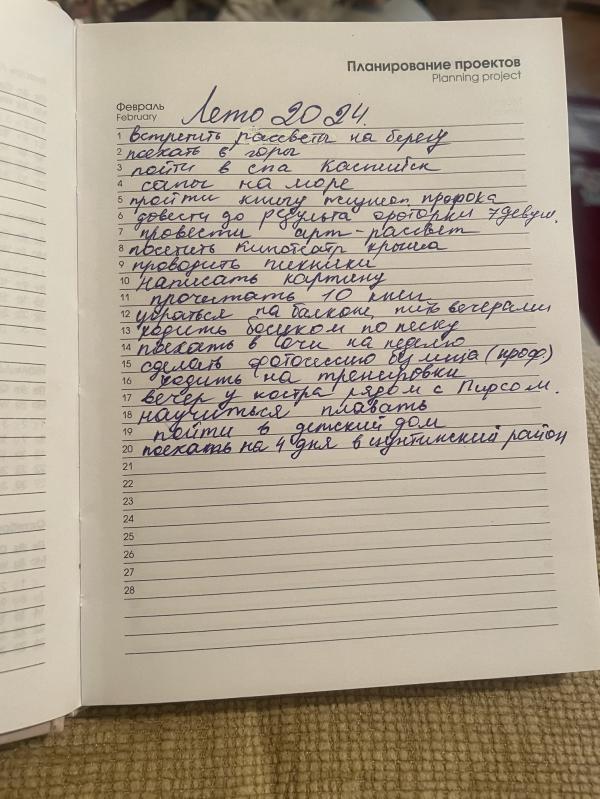 Планирование проектов
Planning project
Февраль
February
Лето 2024.
1 встретить рассветы на берегу
2 поехать в горы
3 пойти в спа Каспийск
4 сапы на море
5 пройти книгу жизнеоп. пророка
6 довести до результа ораторки 7 девуш.
7 провести арт-рассвет
8 посетить кинотеатр крыша
9 проводить пикники
10 написать картину
11 прочитать 10 книг
12 убраться на балконе, пить вечерами
13 ходить босиком по песку
14 поехать в Сочи на неделю
15 сделать фотосессию без лица (проф.)
16 ходить на тренировки
17 вечер у костра рядом с Пирсом.
18 научиться плавать
19 пойти в детский дом
20 поехать на 4 дня в цунтинский район
21
22
23
24
25
26
27
28